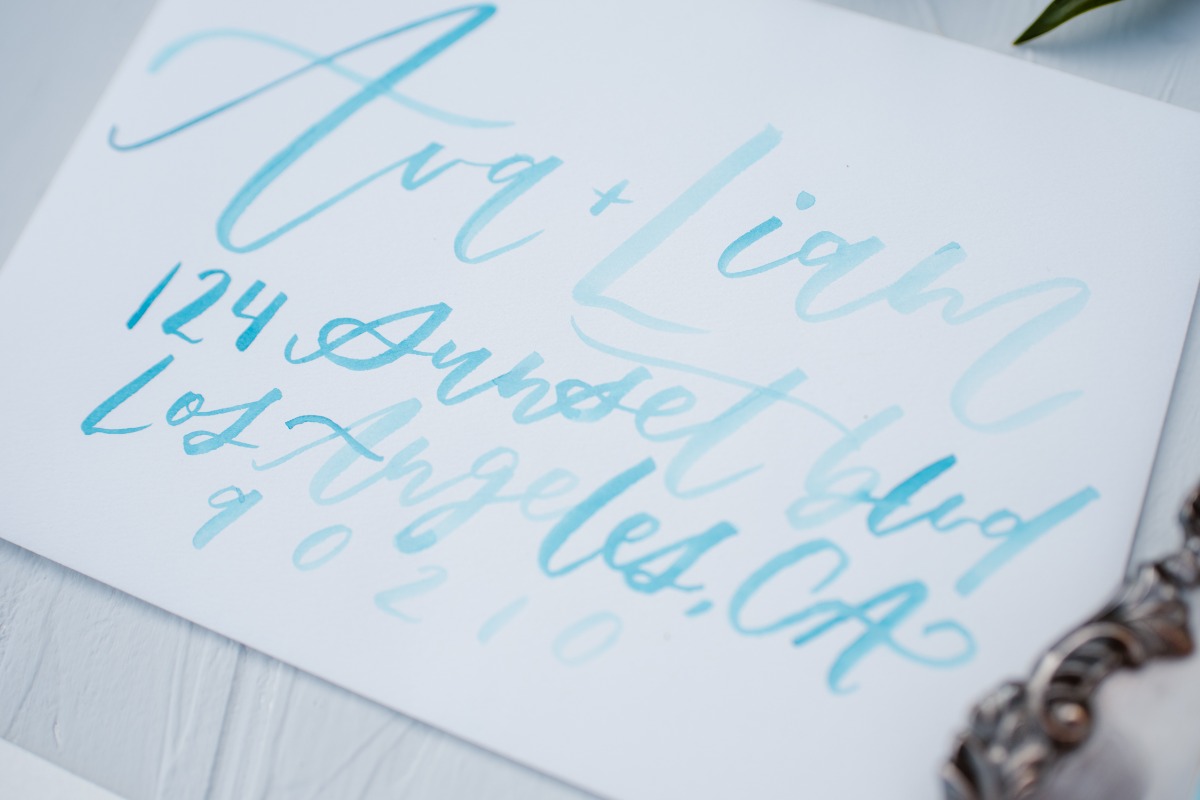 Ava + Liam
124 Sunset blvd
Los Angeles, CA
90210